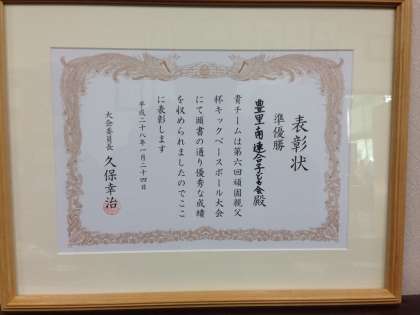 表彰状
準優勝
豊里南連合子ども会殿
貴チームは第六回頑固親父
杯キックベースボール大会
にて頭書の通り優秀な成績
を収められましたのでここ
に表彰します
平成二十八年一月二十四日
大会委員長 久保幸治